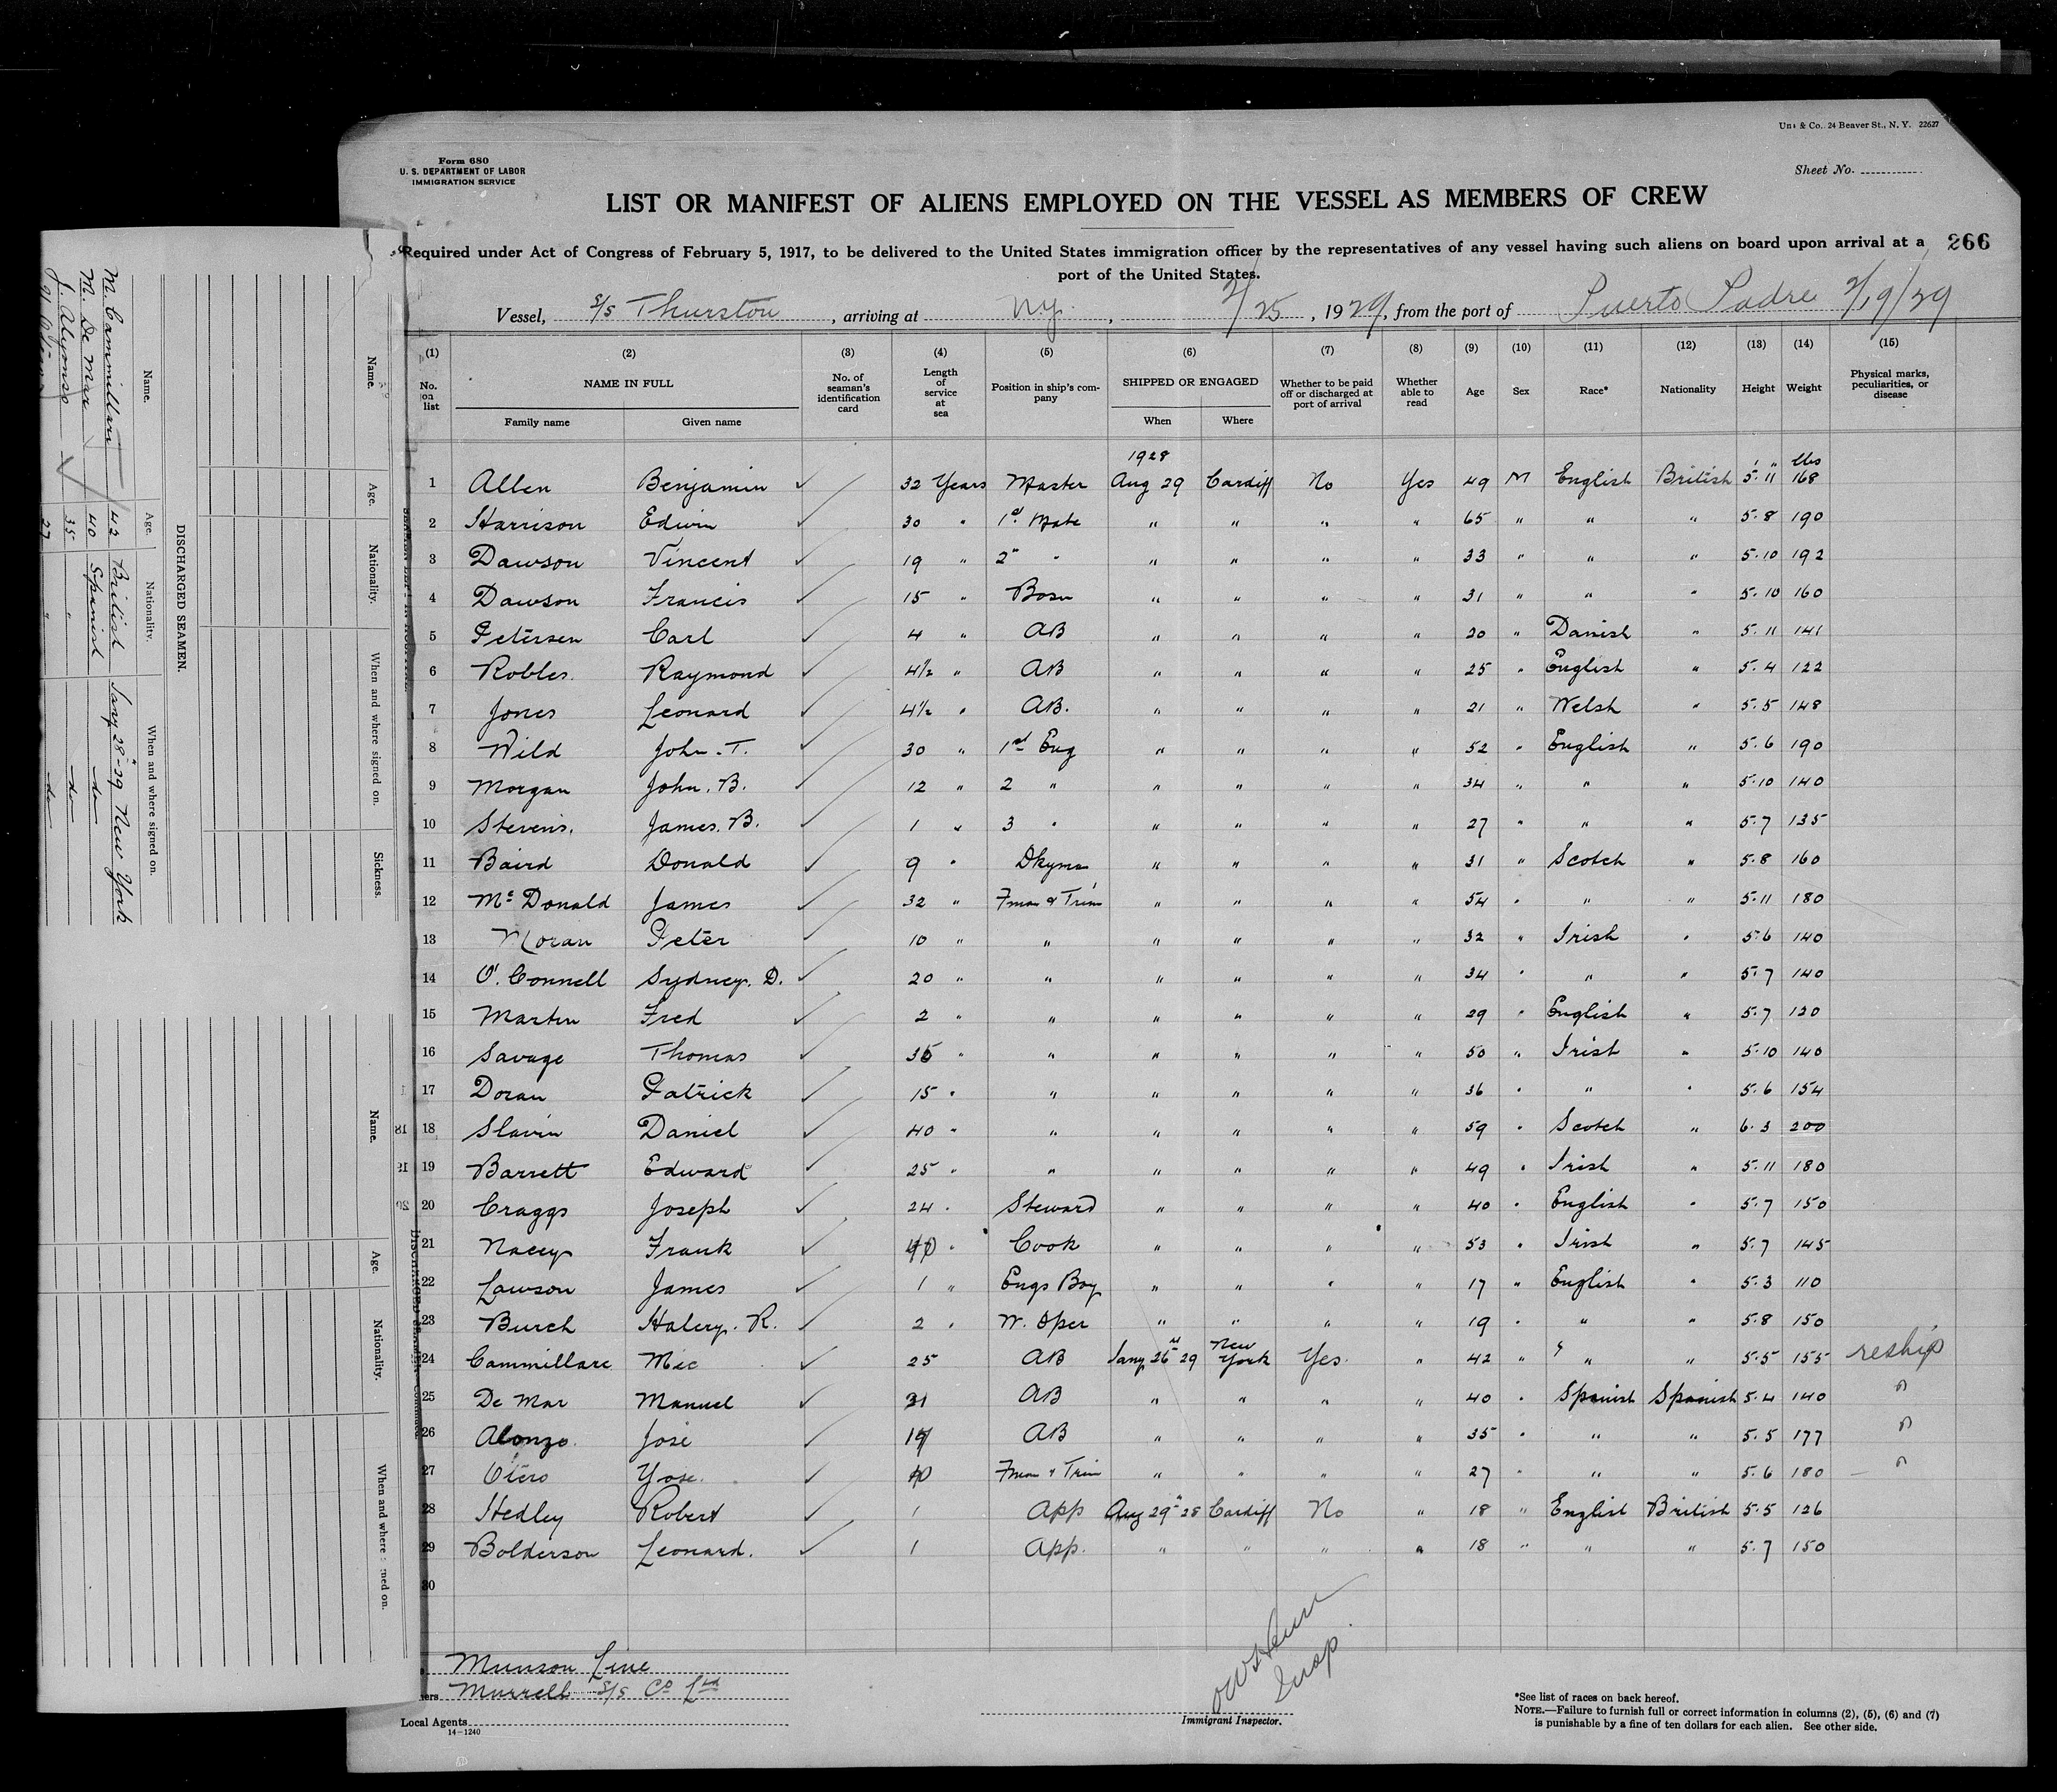 Uns & Co., 24 Beaver St., N. Y. 22627
Form 680
U. S. DEPARTMENT OF LABOR
IMMIGRATION SERVICE
Sheet No.
LIST OR MANIFEST OF ALIENS EMPLOYED ON THE VESSEL AS MEMBERS OF CREW
Required under Act of Congress of February 5, 1917, to be delivered to the United States immigration officer by the representatives of any vessel having such aliens on board upon arrival at a 266
port of the United States.
Vessel, S/S Thurston, arriving at N.Y., 2/25, 1929, from the port of Puerto Padre 2/19/29
(1) (2) (3) (4) (5) (6) (7) (8) (9) (10) (11) (12) (13) (14) (15)
No. on list NAME IN FULL Family name Given name No. of seaman's identification card Length of service at sea Position in ship's company SHIPPED OR ENGAGED When Where Whether to be paid off or discharged at port of arrival Whether able to read Age Sex Race* Nationality Height Weight Physical marks, peculiarities, or disease
1928 ' " lbs
1 Allen Benjamin ✓ 32 Years Master Aug 29 Cardiff No Yes 49 M English British 5.11 168
2 Harrison Edwin ✓ 30 " 1st Mate " " " " 65 " " " 5.8 190
3 Dawson Vincent ✓ 19 " 2" " " " " " 33 " " " 5.10 192
4 Dawson Francis ✓ 15 " Bosn " " " " 31 " " " 5.10 160
5 Petersen Carl ✓ 4 " AB " " " " 20 " Danish " 5.11 141
6 Robles Raymond ✓ 4½ " AB " " " " 25 " English " 5.4 122
7 Jones Leonard ✓ 4½ " AB. " " " " 21 " Welsh " 5.5 148
8 Wild John. T. ✓ 30 " 1st Eng " " " " 52 " English " 5.6 190
9 Morgan John. B. ✓ 12 " 2 " " " " " 34 " " " 5.10 140
10 Stevens. James. B. ✓ 1 " 3 " " " " " 27 " " " 5.7 135
11 Baird Donald ✓ 9 " Dkyman " " " " 31 " Scotch " 5.8 160
12 McDonald James ✓ 32 " Fman & Trim " " " " 54 " " " 5.11 180
13 Moran Peter ✓ 10 " " " " " " 32 " Irish " 5.6 140
14 O'Connell Sydney. D. ✓ 20 " " " " " " 34 " " " 5.7 140
15 Martin Fred ✓ 2 " " " " " " 29 " English " 5.7 120
16 Savage Thomas ✓ " " " " " " 50 " Irish " 5.10 140
17 Doran Patrick ✓ 15 " " " " " " 36 " " " 5.6 154
18 Slavin Daniel ✓ 40 " " " " " " 59 " Scotch " 6.3 200
19 Barrett Edward ✓ 25 " " " " " " 49 " Irish " 5.11 180
20 Craggs Joseph ✓ 24 " Steward " " " " 40 " English " 5.7 150
21 Nacey Frank ✓ 40 " Cook " " " " 53 " Irish " 5.7 145
22 Lawson James ✓ 1 " Engs Boy " " " " 17 " English " 5.3 110
23 Burch Halery. R. ✓ 2 " W. Oper " " " " 19 " " " 5.8 150
24 Cammillare Mic ✓ 25 AB Jany 26 29 New York Yes " 42 " " " 5.5 155 reship
25 De Mar Manuel ✓ 31 AB " " " " 40 " Spanish Spanish 5.4 140 "
26 Alonzo. José ✓ AB " " " " 35 " " " 5.5 177 "
27 Otero Yose. ✓ Fman & Trim " " " " 27 " " " 5.6 180 "
28 Hedley Robert ✓ 1 App Aug 29" 28 Cardiff No " 18 " English British 5.5 126
29 Bolderson Leonard. ✓ 1 App. " " " " 18 " " " 5.7 150
30
Munson Line
Murrell S/S Co Ltd
Local Agents
14-1240
Immigrant Inspector.
Insp
*See list of races on back hereof.
NOTE.—Failure to furnish full or correct information in columns (2), (5), (6) and (7)
is punishable by a fine of ten dollars for each alien. See other side.
DISCHARGED SEAMEN.
Name. Age. Nationality. When and where signed on.
M. Cammillari 42 British Jany 28"-29 New York
M. De Mar 40 Spanish do
J. Alyonso 35 " do
27 " do
Name. Age. Nationality. When and where signed on. Sickness.
Name. Age. Nationality. When and where signed on.